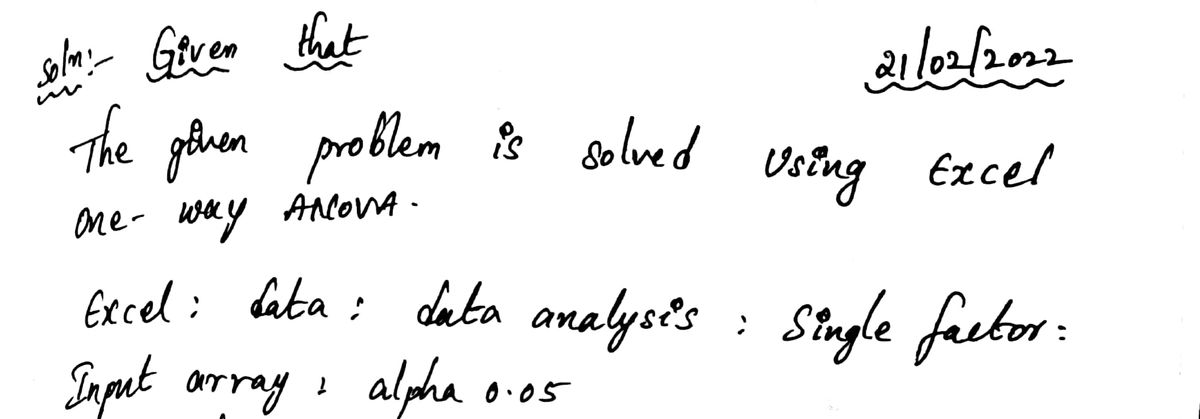 Soln:- Given that 21/02/2022
The given problem is solved Using Excel
One-way ANOVA.
Excel: data: data analysis: Single factor:
Input array: alpha 0.05